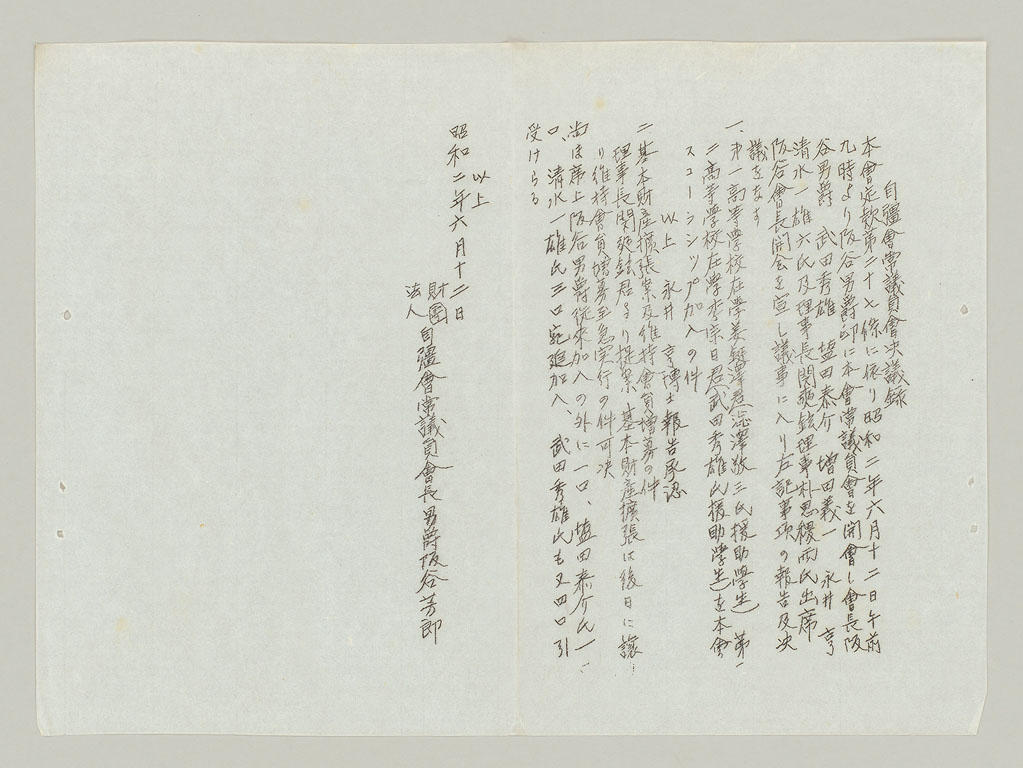 自彊會常議員會決議録
本會定款第二十七條に依り昭和二年六月十二日午前
九時より阪谷男爵邸に本會常議員會を開會し會長阪
谷男爵 武田秀雄 塩田泰介 増田義一 永井 亨
清水一雄六氏及理事長関 鉉理事朴思稷両氏出席
阪谷會長開会を宣し議事に入り左記事項の報告及决
議をなす
一、第一高等學校在學姜 澤君(澁澤敬三氏援助學生) 第一
二高等學校在學 日君(武田秀雄氏援助學生)を本會
スコーラシップ加入の件
以上 永井 亨博士報告承認
二 基本財産擴張案及維持會員増募の件
理事長関 鉉君より提案 基本財産擴張は後日に譲
り維持會員増募至急実行の件可决
尚ほ席上阪谷男爵従来加入の外に一口、塩田泰介氏一
口、清水一雄氏三口宛追加入、武田秀雄氏も又四口引
受けらる
以上
昭和二年六月十二日
財團
法人 自彊會常議員會長男爵阪谷芳郎